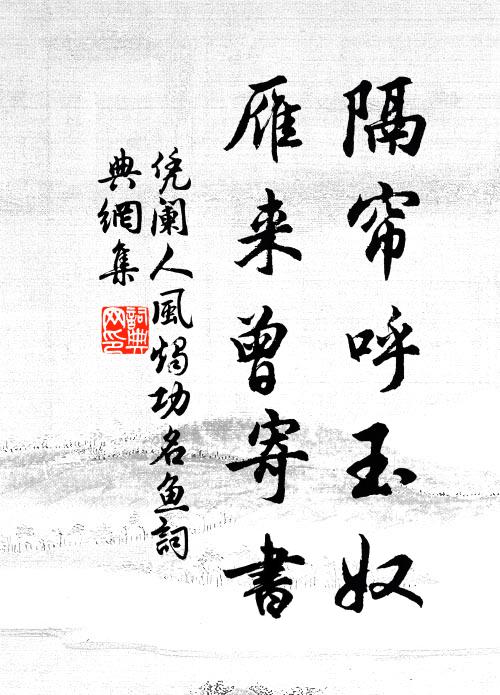 隔帘呼玉奴
雁来曾寄书
凭阑人風燭功名鱼詞
典網集
詞典
网印